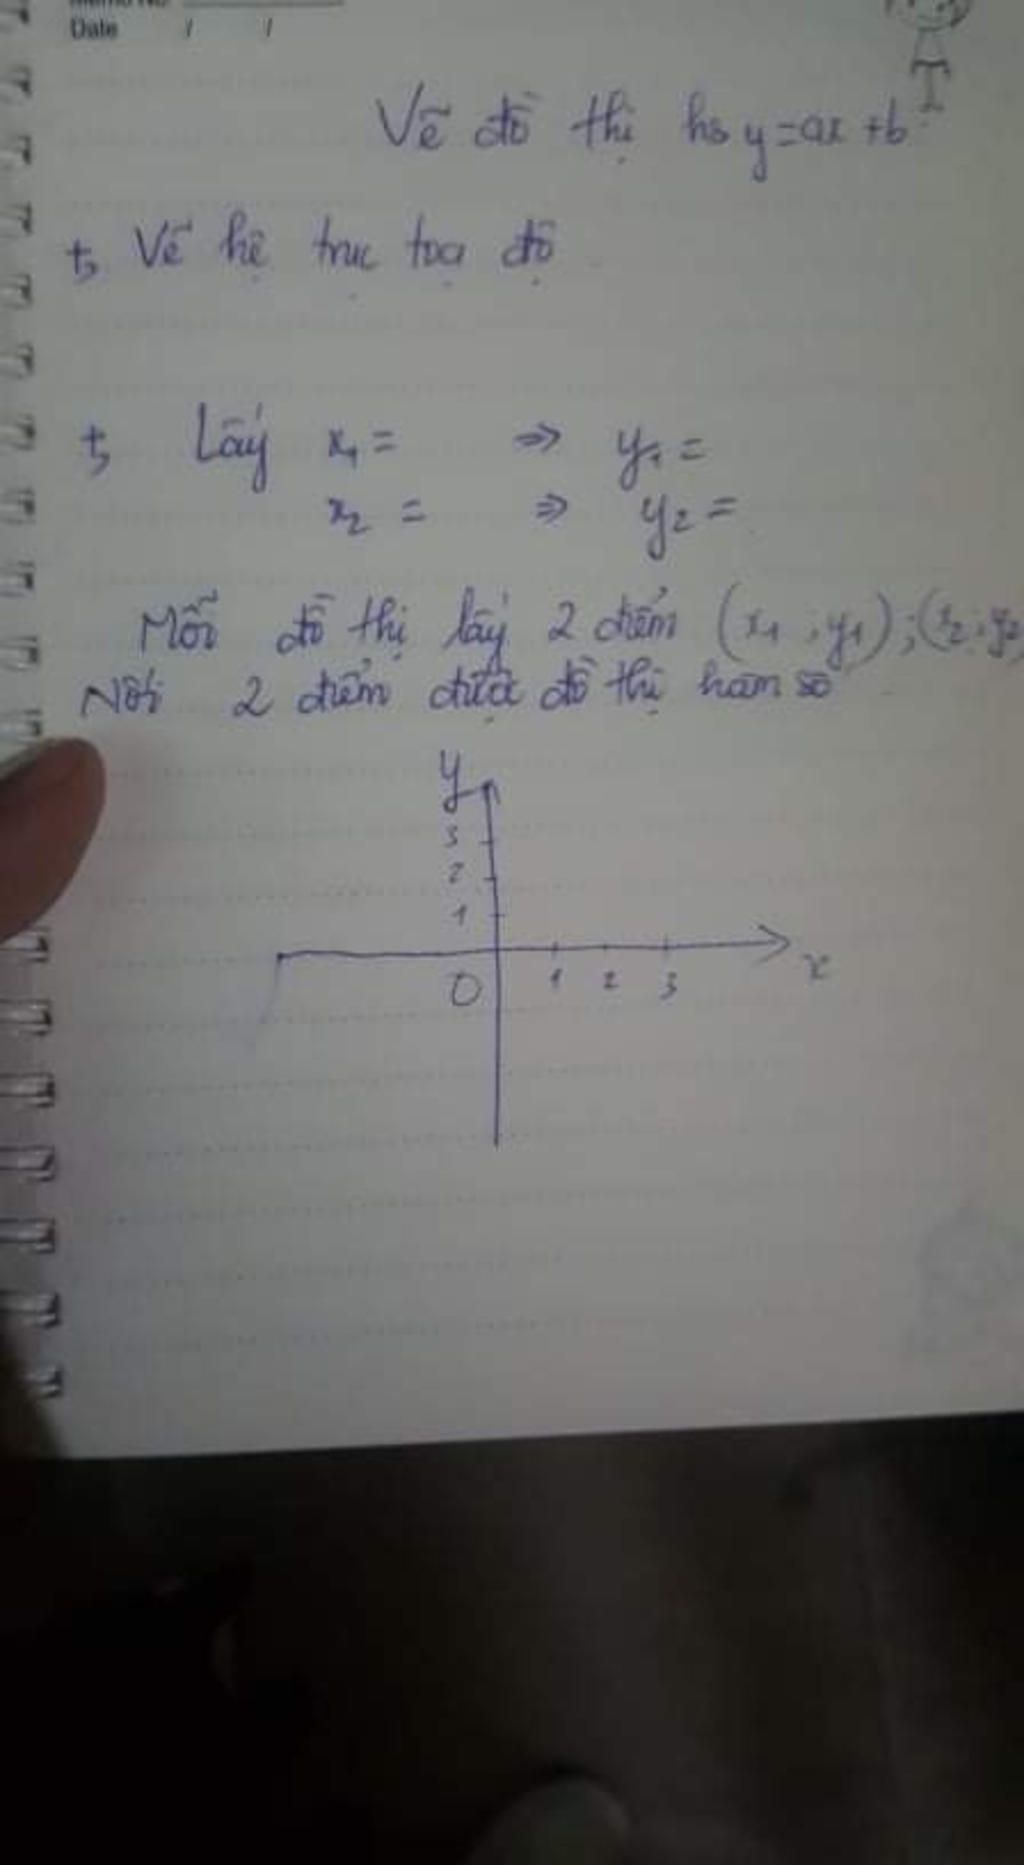 Memo No.
Date / /
Vẽ đồ thị hs y=ax+b
+, Vẽ hệ trục toạ độ
+, Lấy x₁ = => y₁ =
x₂ = => y₂ =
Mỗi đồ thị lấy 2 điểm (x₁, y₁); (x₂; y₂
Nối 2 điểm được đồ thị hàm số
y
3
2
1
O 1 2 3 x